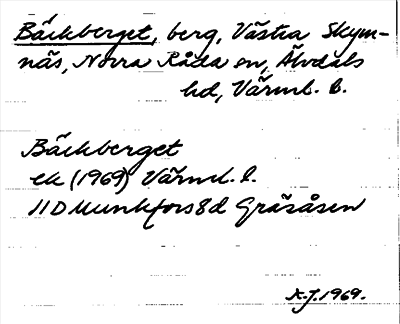 Bäckberget, berg, Västra Skym-
näs, Norra Råda sn, Älvdals
hd, Värml. l.
Bäckberget
ek (1969) Värml. l.
11D Munkfors 8d Gräsåsen
A.J. 1969.